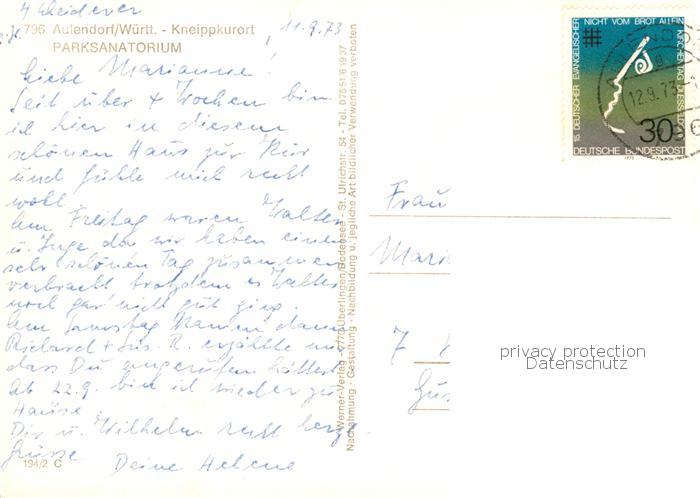 796 Aulendorf/Württ. - Kneippkurort
PARKSANATORIUM
11.9.73
Liebe Marianne!
Seit über 4 Wochen bin
ich hier in diesem
schönen Haus zur Kur
und fühle mich recht
wohl.
Am Freitag waren Walter
u. Inge da wir haben einen
sehr schönen Tag zusammen
verbracht trotzdem es Walter
noch gar nicht gut ging.
Am Samstag kamen dann
Richard + Lis. R. erzählte mir
dass Du angerufen hättest
Ab 22.9. bin ich wieder zu
Hause
Dir u. Wilhelm recht herzl.
Grüsse
Deine Helene
194/2 C
Werner-Verlag · 7770 Überlingen/Bodensee · St. Ulrichstr. 54 - Tel. 07551/6 19 37
Nachahmung · Gestaltung · Nachbildung u. jegliche Art bildlicher Verwendung verboten
15. DEUTSCHER EVANGELISCHER
NICHT VOM BROT ALLEIN
KIRCHENTAG DÜSSELDORF
30
DEUTSCHE BUNDESPOST
12.9.73
Frau
7
privacy protection
Datenschutz